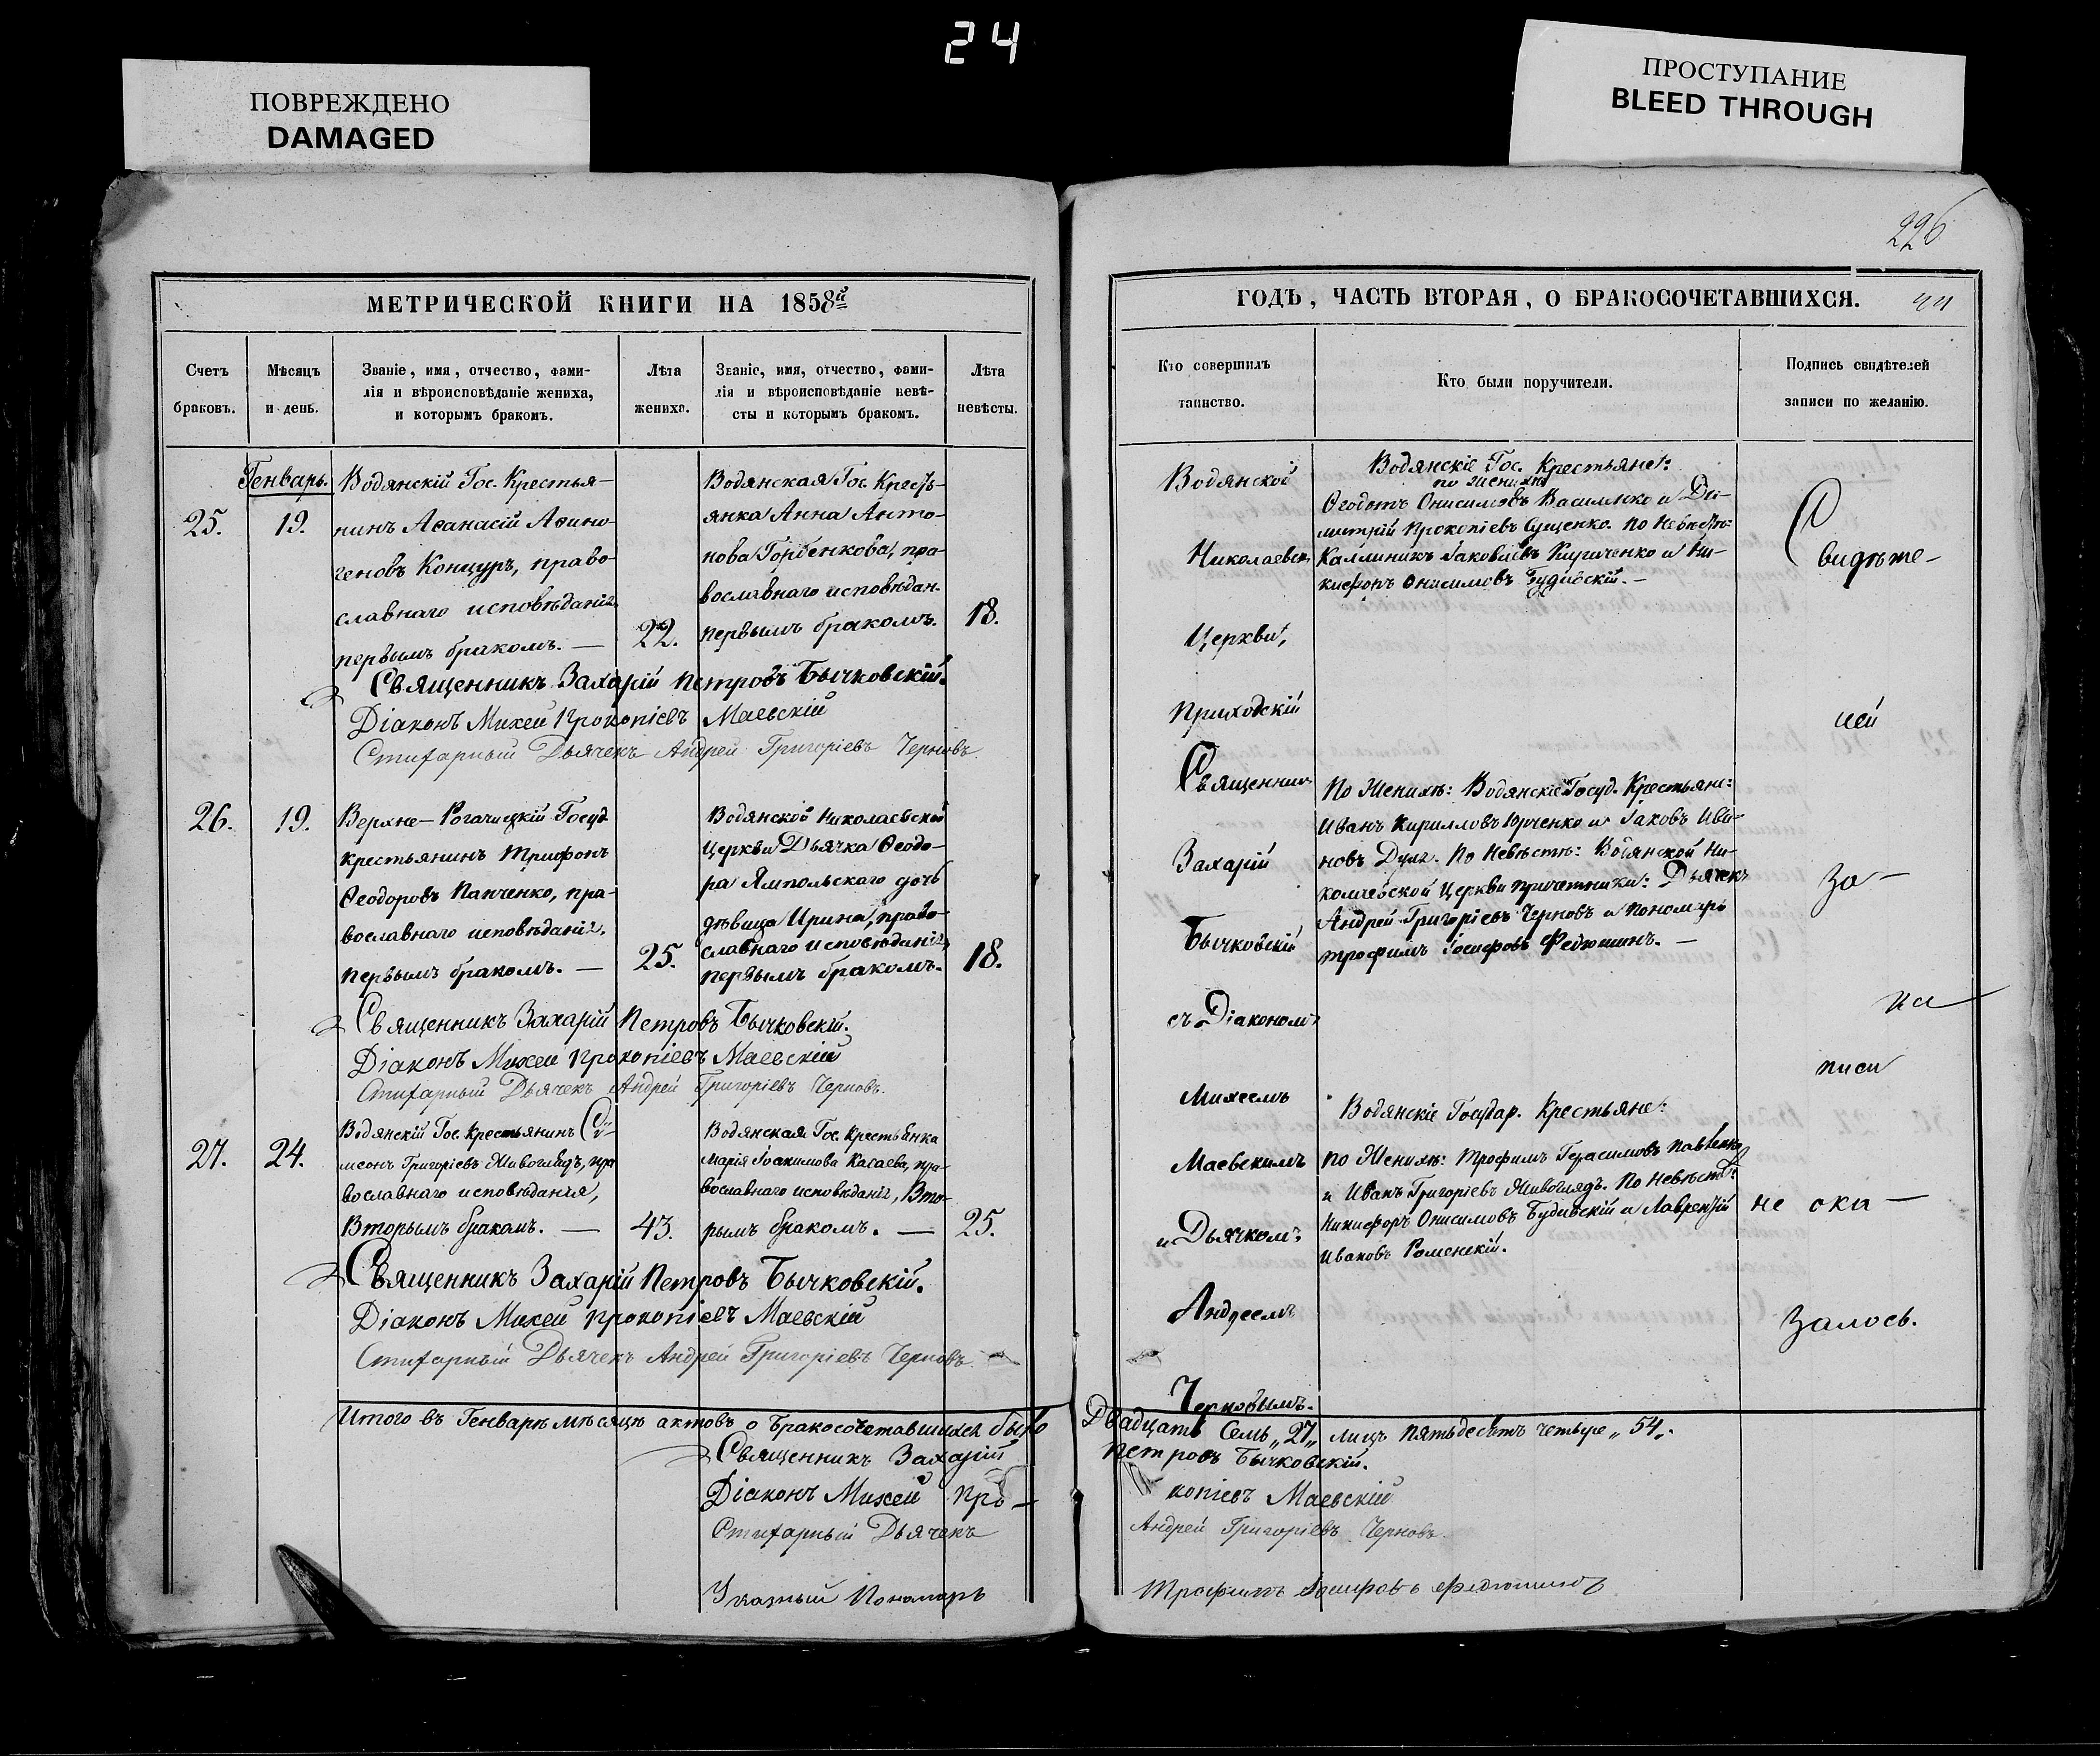 24
ПОВРЕЖДЕНО
DAMAGED
ПРОСТУПАНИЕ
BLEED THROUGH
МЕТРИЧЕСКОЙ КНИГИ НА 1858й
Счетъ
браковъ.
Мѣсяцъ
и день.
Званіе, имя, отчество, фами-
лія и вѣроисповѣданіе жениха,
и которымъ бракомъ.
Лѣта
жениха.
Званіе, имя, отчество, фами-
лія и вѣроисповѣданіе невѣ-
сты и которымъ бракомъ.
Лѣта
невѣсты.
25.
Генварь.
19.
Водянскій Гос. Крестья-
нинъ Аѳанасій Аѳино-
геновъ Концуръ, право-
славнаго исповѣданія
первымъ бракомъ. —
22.
Водянская Гос. Кресть-
янка Анна Анто-
нова Горбенкова, пра-
вославнаго исповѣдан.
первымъ бракомъ.
18.
Священникъ Захарій Петровъ Бычковскій.
Діаконъ Михей Прокопіевъ Маевскій
Стихарный Дьячекъ Андрей Григоріевъ Черновъ
26.
19.
Верхне-Рогачицкій Госуд
крестьянинъ Трифонъ
Ѳеодоровъ Панченко, пра-
вославнаго исповѣданія,
первымъ бракомъ. —
25.
Водянской Николаевской
Церкви Дьячка Ѳеодо-
ра Ямпольскаго дочь
дѣвица Ирина, право-
славнаго исповѣданія,
первымъ бракомъ.
18.
Священникъ Захарій Петровъ Бычковскій.
Діаконъ Михей Прокопіевъ Маевскій
Стихарный Дьячекъ Андрей Григоріевъ Черновъ.
27.
24.
Водянскій Гос. Крестьянинъ Си-
меонъ Григоріевъ Живоглядъ, пра
вославнаго исповѣдания,
Вторымъ бракомъ. —
43.
Водянская Гос. Крестьянка
Марія Іоакимова Касаева, пра-
вославнаго исповѣданія, Вто-
рымъ бракомъ. —
25.
Священникъ Захарій Петровъ Бычковскій.
Діаконъ Михей Прокопіевъ Маевскій
Стихарный Дьячекъ Андрей Григоріевъ Черновъ
Итого въ Генварѣ мѣсяцѣ актовъ о бракосочетавшихся было
Священникъ Захарій
Діаконъ Михей Про-
Стихарный Дьячекъ
Указный Пономарь
226
ГОДЪ, ЧАСТЬ ВТОРАЯ, О БРАКОСОЧЕТАВШИХСЯ.
Кто совершилъ
таинство.
Кто были поручители.
Подпись свидѣтелей
записи по желанію.
Водянской
Николаевск.
Церкви,
Приходскій
Священник
Захарій
Бычковскій
съ Діакономъ
Михеемъ
Маевскимъ
и Дьячкомъ
Андреемъ
Черновымъ.
Водянскіе Гос. Крестьяне:
по женихѣ
Ѳеодотъ Онисимовъ Василенко и Ди-
митрій Прокопіевъ Сущенко. По Невѣстѣ:
Каллиникъ Іаковлевъ и Ни-
кифоръ Онисимовъ Будивскій. —
По Женихѣ: Водянскіе Госуд. Крестьяне:
Иванъ Кирилловъ Юрченко и Іаковъ Ива-
новъ. По Невѣстѣ: Водянской Ни-
колаевской Церкви причетники: Дьячекъ
Андрей Григоріевъ Черновъ и Пономарь
Трофимъ Іосифовъ Федюшинъ. —
Водянскіе Государ. Крестьяне:
По Женихѣ: Трофимъ Герасимовъ Павленко
и Иванъ Григоріевъ Живоглядъ. По Невѣстѣ:
Никифоръ Онисимовъ Будивскій и Лаврентій
Ивановъ Роменскій.
Свидѣте-
лей
за-
пи
писи
не ока-
залось.
Двадцать Семь „27„ лицъ пятьдесятъ четыре „54„.
Петровъ Бычковскій.
копіевъ Маевскій
Андрей Григоріевъ Черновъ.
Трофимъ Іосифовъ Федюшинъ